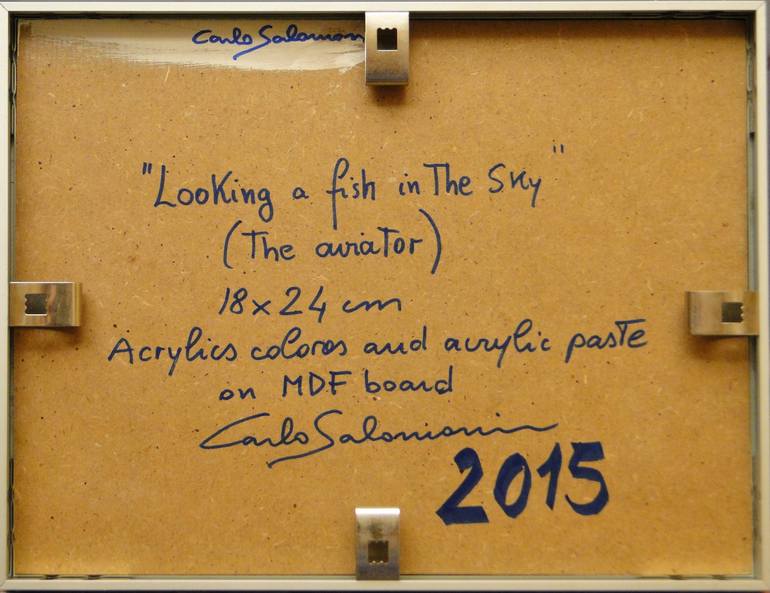 Carlo Salomon
"Looking a fish in The Sky"
(The aviator)
18x24 cm
Acrylics colors and acrylic paste
on MDF board
Carlo Salomonin
2015